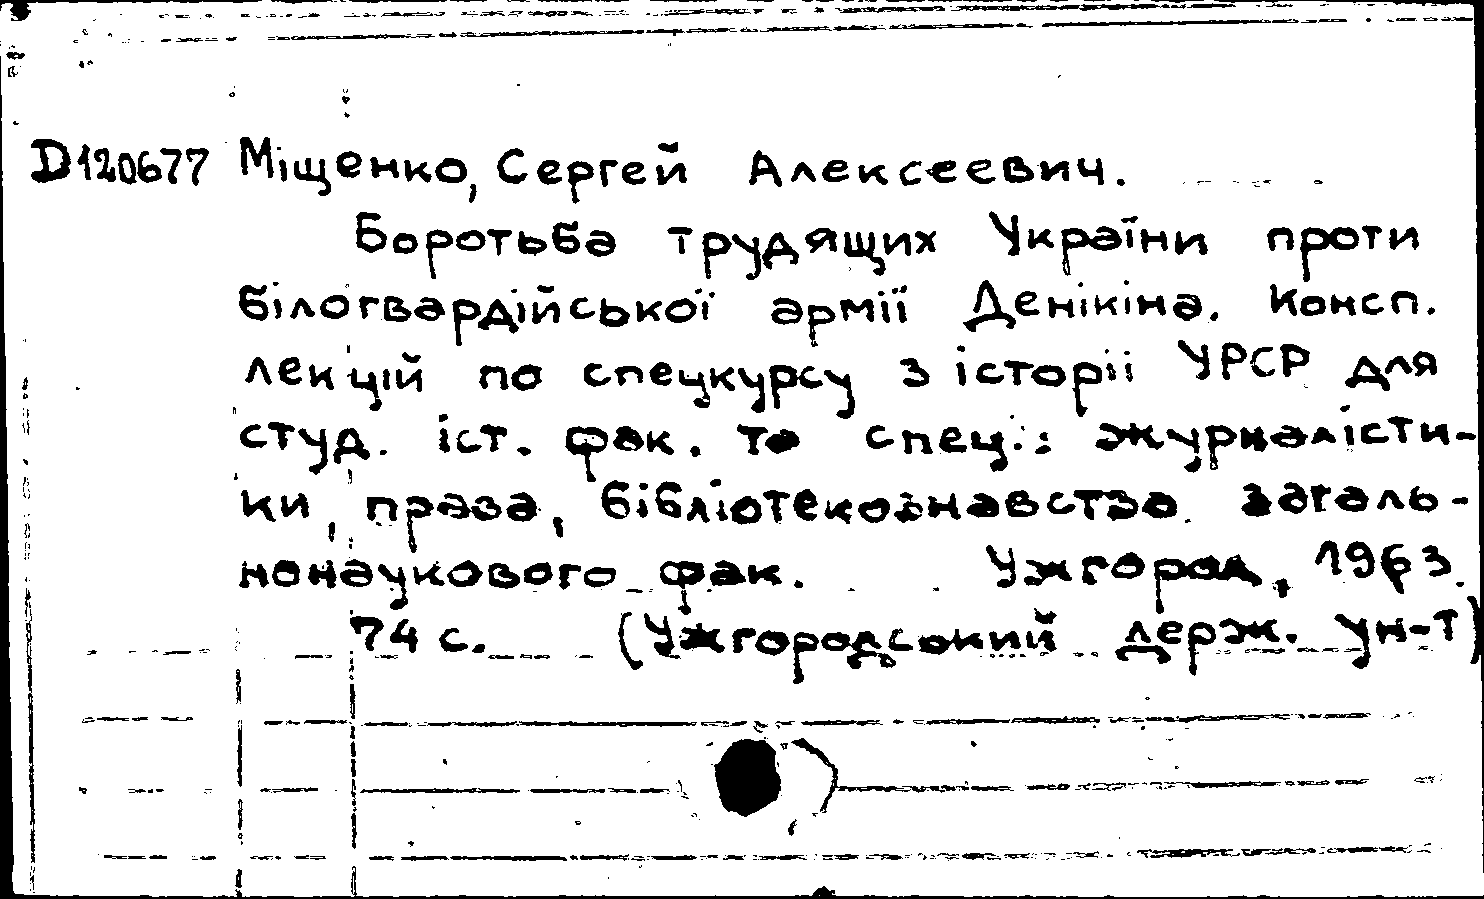 D120677 Міщенко, Сергей Алексеевич.
Боротьба трудящих України проти
білогвардійської армії Денікіна. Консп.
лекцій по спецкурсу з історіі УРСР для
студ. іст. фак. та спец.: журналісти-
ки, права, бібліотекознавства загаль-
нонаукового фак. Ужгород, 1963.
74 с. (Ужгородський держ. ун-т)